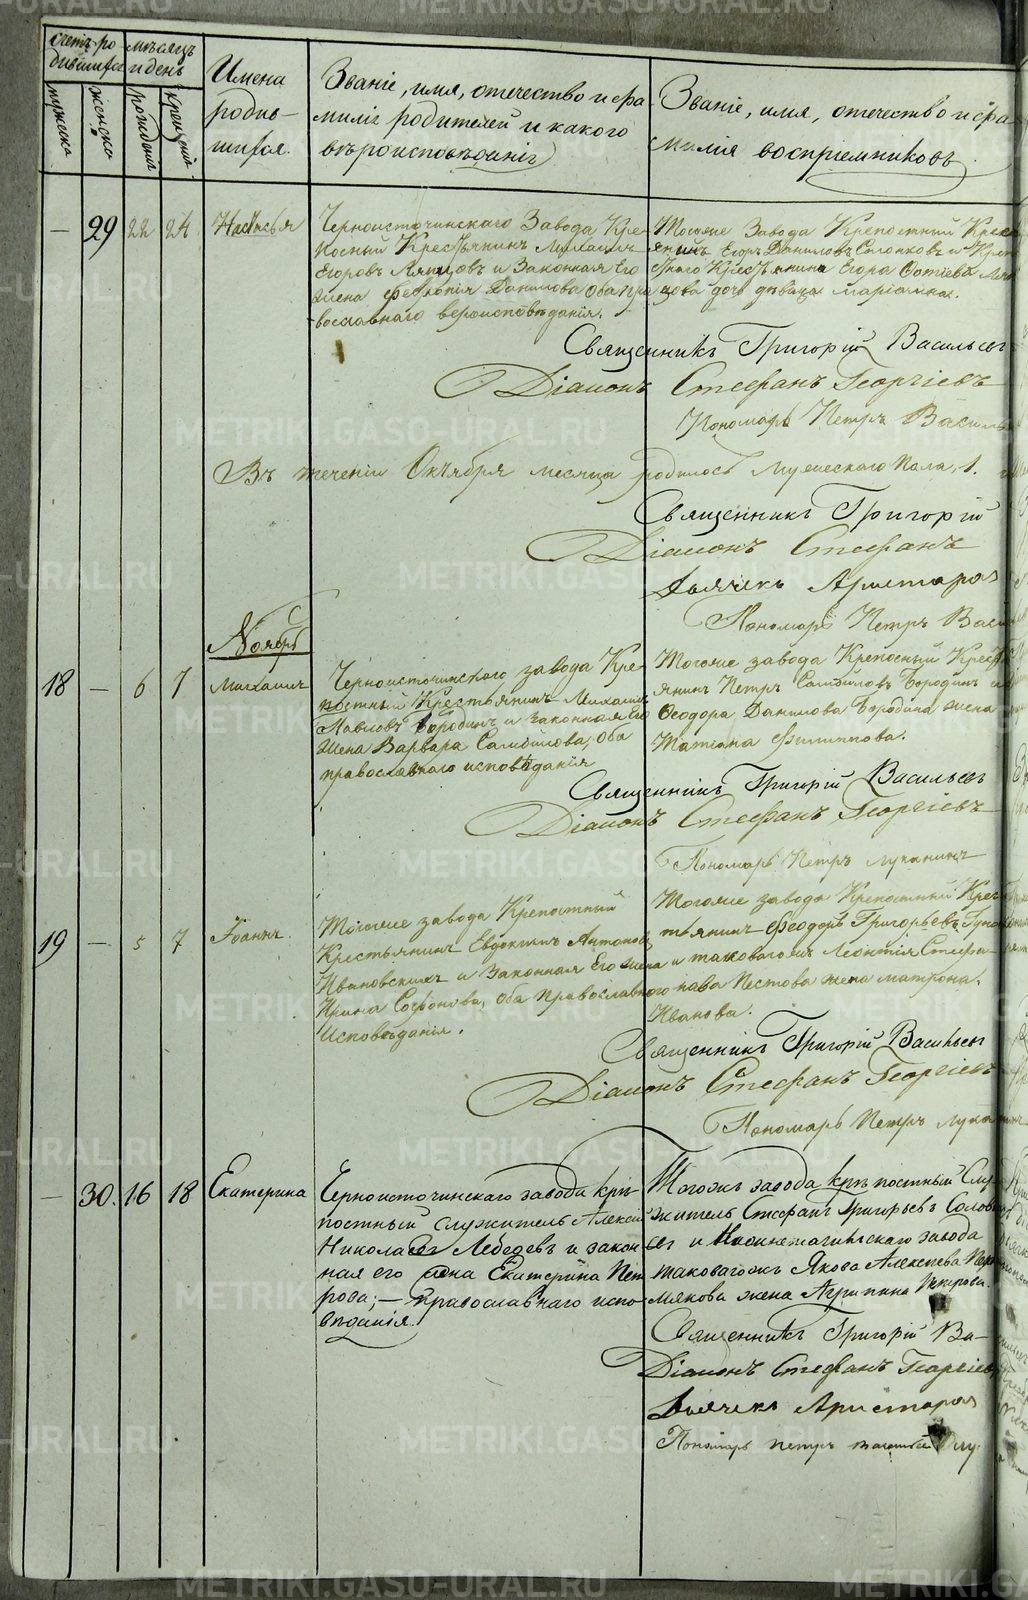 Счетъ ро-
дившихся
мѣсяцъ
и день
мужеска
женска
рожденія
крещенія
Имена
родив-
шихся.
Званіе, имя, отечество и фа-
милія родителей и какого
вѣроисповѣданія
Званіе, имя, отечество и фа-
милія воспріемниковъ
— 29 22 24 Настасья
Черноисточинскаго Завода Кре-
постный Крестьянинъ Михаилъ
Егоровъ и Законная Его
жена Данилова Оба пра-
вославнаго вероисповѣданія.
Тогоже Завода Крепостный Крест
янинъ Егоръ Даниловъ и Креп
Крестьянина Егора
дочь дѣвица
Священникъ Григорій Васильев
Діаконъ Стефанъ Георгіевъ
Пономарь Петръ Василь
Въ теченіи Октября месяца родилось Мужескаго Пола, 1.
Священникъ Григорій
Діаконъ Стефанъ
Дьячекъ Аристарха
Пономарь Петръ Васи
Ноябрь
18 — 6 7 Михаилъ
Черноисточинскаго завода Кре-
постный Крестьянинъ Михаилъ
Павловъ Бородинъ и законная Его
жена Варвара Самойлова, оба
православнаго исповѣданія
Тогоже завода Крепосный Крест
янинъ Петръ Самойловъ Бородинъ и
Феодора Данилова Бородина жена
Татіана Филиппова.
Священникъ Григорій Васильев
Діаконъ Стефанъ Георгіевъ
Пономарь Петръ Луканинъ
19 — 5 7 Іоаннъ
Тогоже завода Крепостный
Крестьянинъ Евдокимъ Антоновъ
Ивановскихъ и Законная Его жена
Ирина Софонова, оба Православнаго
Исповѣданія.
Тогоже завода Крепостный Крес
тьянинъ Феодоръ Григорьевъ
и таковагожъ Леонтія Стефа-
нова Пестова жена матрона
Иванова.
Священникъ Григорій Васильев
Діаконъ Стефанъ Георгіевъ
Пономарь Петръ Лука
— 30. 16 18 Екатерина
Черноисточинскаго завода крѣ-
постный служитель Алексей
Николаевъ Лебедевъ и закон-
ная его жена Екатерина Пет-
рова; — православнаго испо-
вѣданія.
Тогожъ завода крѣпостный Слу-
житель Стефанъ Григорьевъ Соловь
евъ и Нижнетагильскаго завода
таковагожъ Якова Алексѣева Пер
мякова жена Агрипина Петрова.
Священникъ Григорій Ва-
Діаконъ Стефанъ Георгіев
Дьячекъ Аристарха
Пономарь Петръ
METRIKI.GASO-URAL.RU